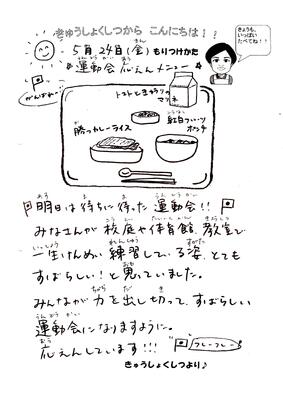 きゅうしょくしつから こんにちは！！
きょうも、
いっぱい
たべてね！！
5月24日(金) もりつけかた
運動会 応えんメニュー
がんばれー!!
トマトときゅうりの
マリネ
勝つカレーライス
紅白フルーツ
ポンチ
明日は待ちに待った運動会！！
みなさんが校庭や体育館、教室で
一生けんめい練習している姿、とても
すばらしい！と思っていました。
みんなが力を出し切って、すばらしい
運動会になりますように。
応えんしています！！！
フレーフレー
きゅうしょくしつより♪